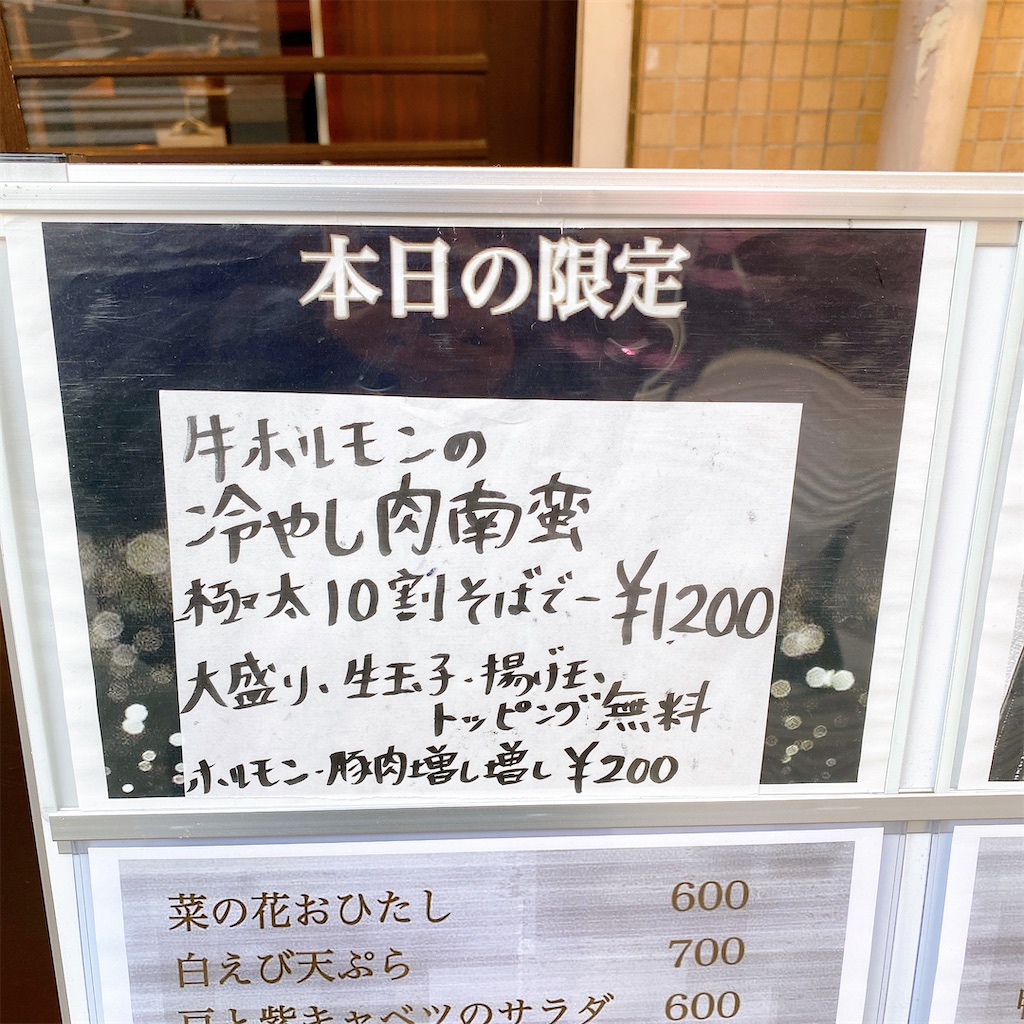 本日の限定
牛ホルモンの
冷やし肉南蛮
極太10割そばでー ¥1200
大盛り、生玉子、揚げ玉、
トッピング無料
ホルモン・豚肉増し増し ¥200
菜の花おひたし 600
白えび天ぷら 700
豆と紫キャベツのサラダ 600